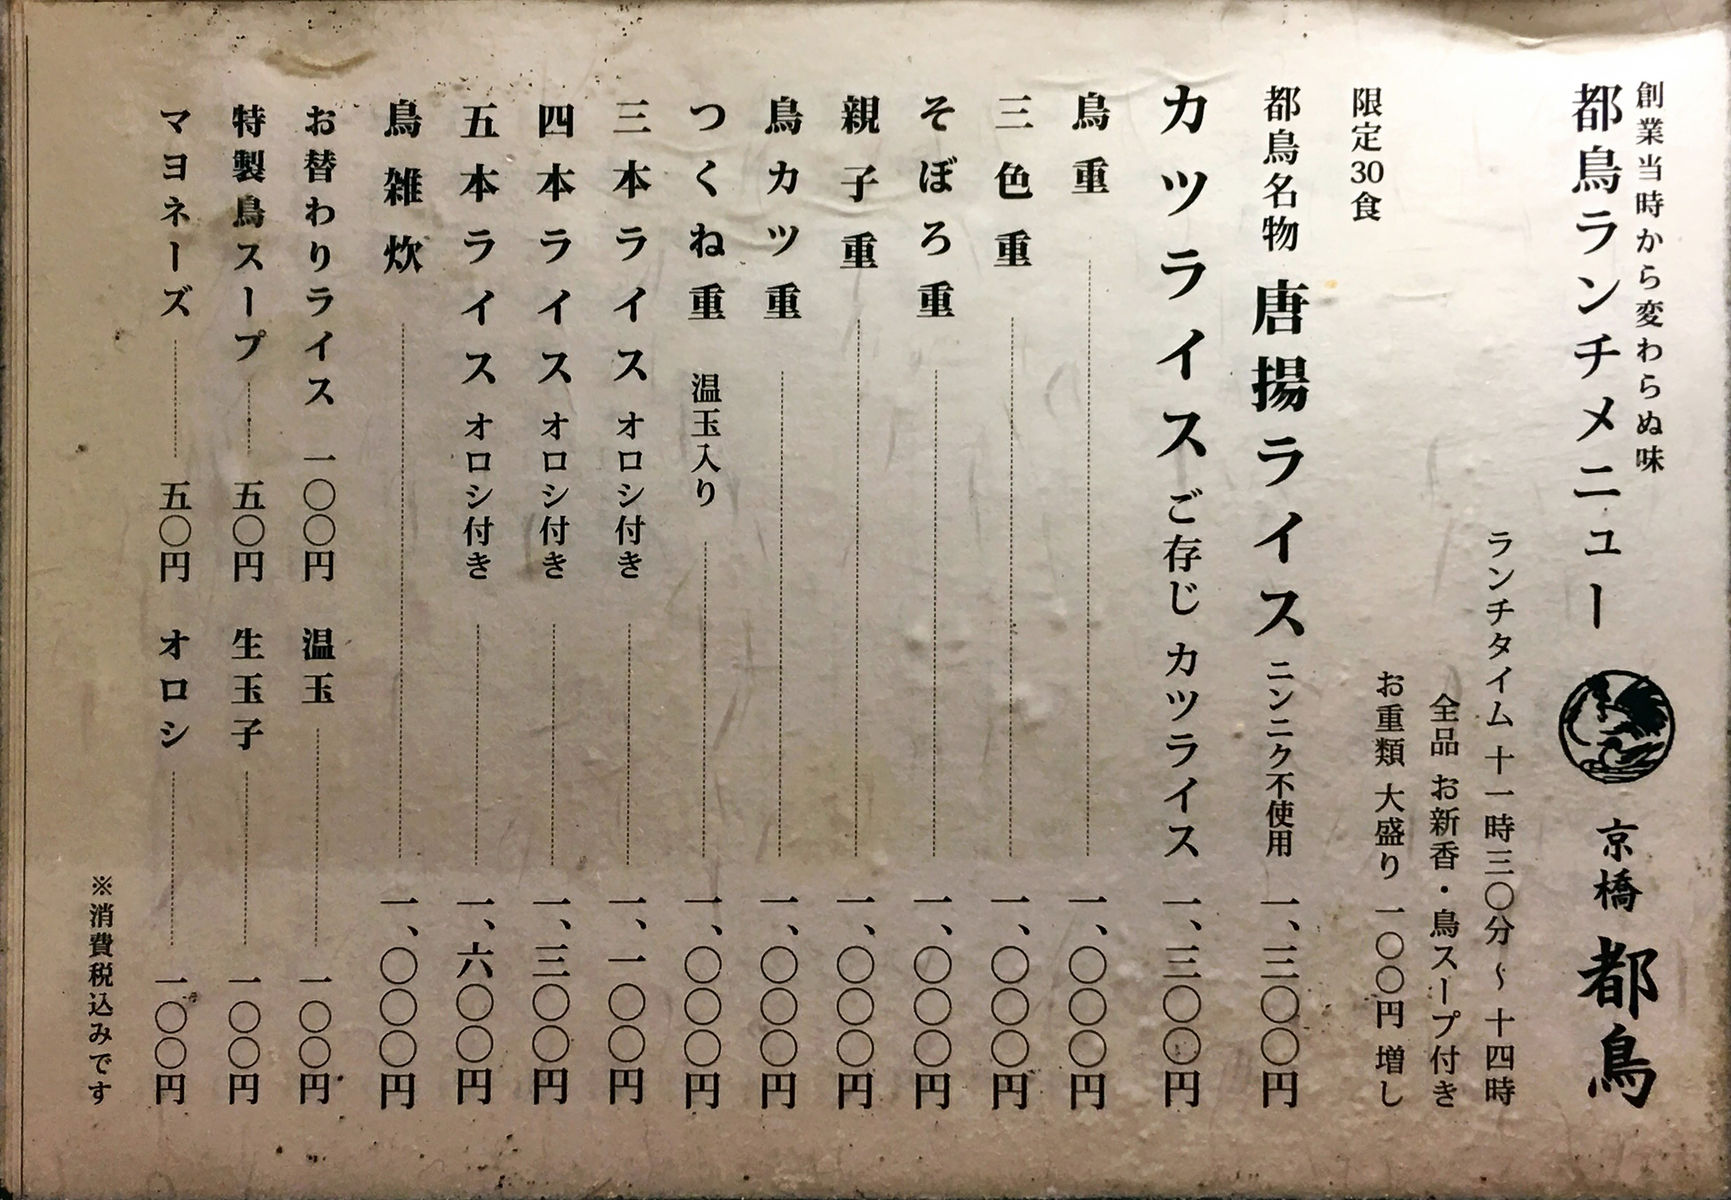 創業当時から変わらぬ味
都鳥ランチメニュー
京橋 都鳥
ランチタイム 十一時三〇分〜十四時
全品 お新香・鳥スープ付き
お重類 大盛り 一〇〇円 増し
限定30食
都鳥名物 唐揚ライス ニンニク不使用 一、三〇〇円
カツライス ご存じ カツライス 一、三〇〇円
鳥重 一、〇〇〇円
三色重 一、〇〇〇円
そぼろ重 一、〇〇〇円
親子重 一、〇〇〇円
鳥カツ重 一、〇〇〇円
つくね重 温玉入り 一、〇〇〇円
三本ライス オロシ付き 一、一〇〇円
四本ライス オロシ付き 一、三〇〇円
五本ライス オロシ付き 一、六〇〇円
鳥雑炊 一、〇〇〇円
お替わりライス 一〇〇円 温玉 一〇〇円
特製鳥スープ 五〇円 生玉子 一〇〇円
マヨネーズ 五〇円 オロシ 一〇〇円
※消費税込みです